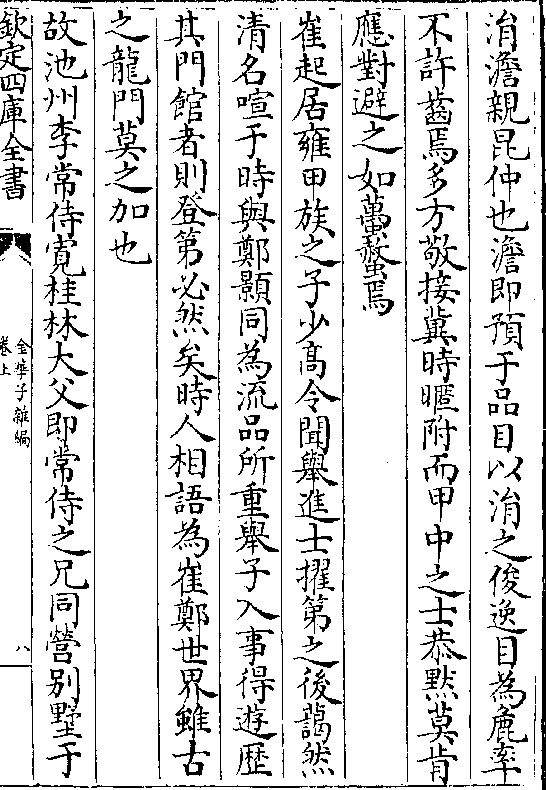 涓澹親昆仲也澹即預于品目以涓之俊逸目為麄率
不許齒焉多方敬接冀時暱附而甲中之士恭默莫肯
應對避之如蠆螫焉
崔起居雍甲族之子少髙令聞舉進士擢第之後藹然
清名喧于時與鄭顥同為流品所重舉子入事得遊歴
其門館者則登第必然矣時人相語為崔鄭世界雖古
之龍門莫之加也
故池州李常侍寛桂林大父即常侍之兄同營别墅于
欽定四庫全書
金華子雜編
卷上
八